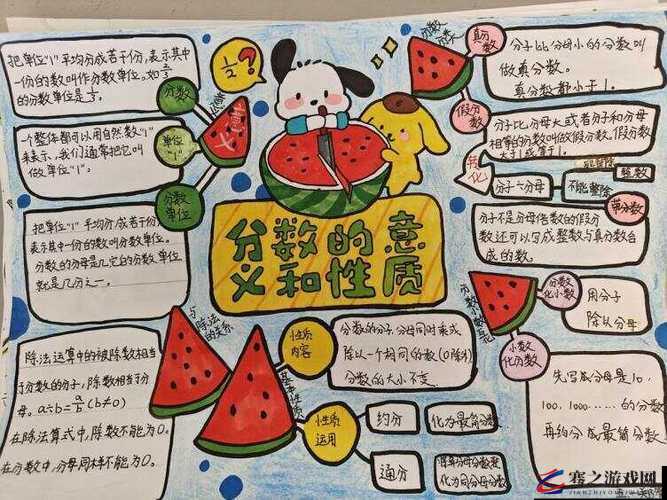 把单位"1"平均分成若干份,表示其中
一份的数叫作分数单位。如2/3
的分数单位是1/3。
分数
意义
1/2?
一个整体都可以用自然数"1"
来表示,我们通常把它叫
做单位"1"。
单位
"1"
把单位"1"平均分成若干份
表示其中一份的数叫分数单位。
分数的分母是几,它的分数单位
就是几分之一。
分数
单位
分数的意
义和性质
分数
分类
真分数
分子比分母小的分数叫
做真分数。
真分数都小于1。
假分数
分子比分母大或者分子和分母
相等的分数叫做假分数。假分数
大于1或等于1。
转化
分子÷分母
能整除
整数
不能整除
带分数
分子不是分母倍数的假分
数还可以写成整数与真分数合
成的数。
与除法
的关系
除法运算中的被除数相当
于分数的分子,除数相当于分
母。a÷b=a/b(b≠0)
在除法算式中,除数不能为0。
在分数中,分母同样不能为0。
基本性质
性质
内容
分数的分子、分母同时乘或
除以一个相同的数(0除外)
分数的大小不变。
性质
运用
约分
化为最简分数
通分
异分母分数变
化为同分母分数
分数小数互化
分数
化小数
用分子
除以分母
小数
化分数
先写成分母是10,
100,1000……的分数
再约分成最简分数
骞之游戏网
TIANZHIYOUXIWANG